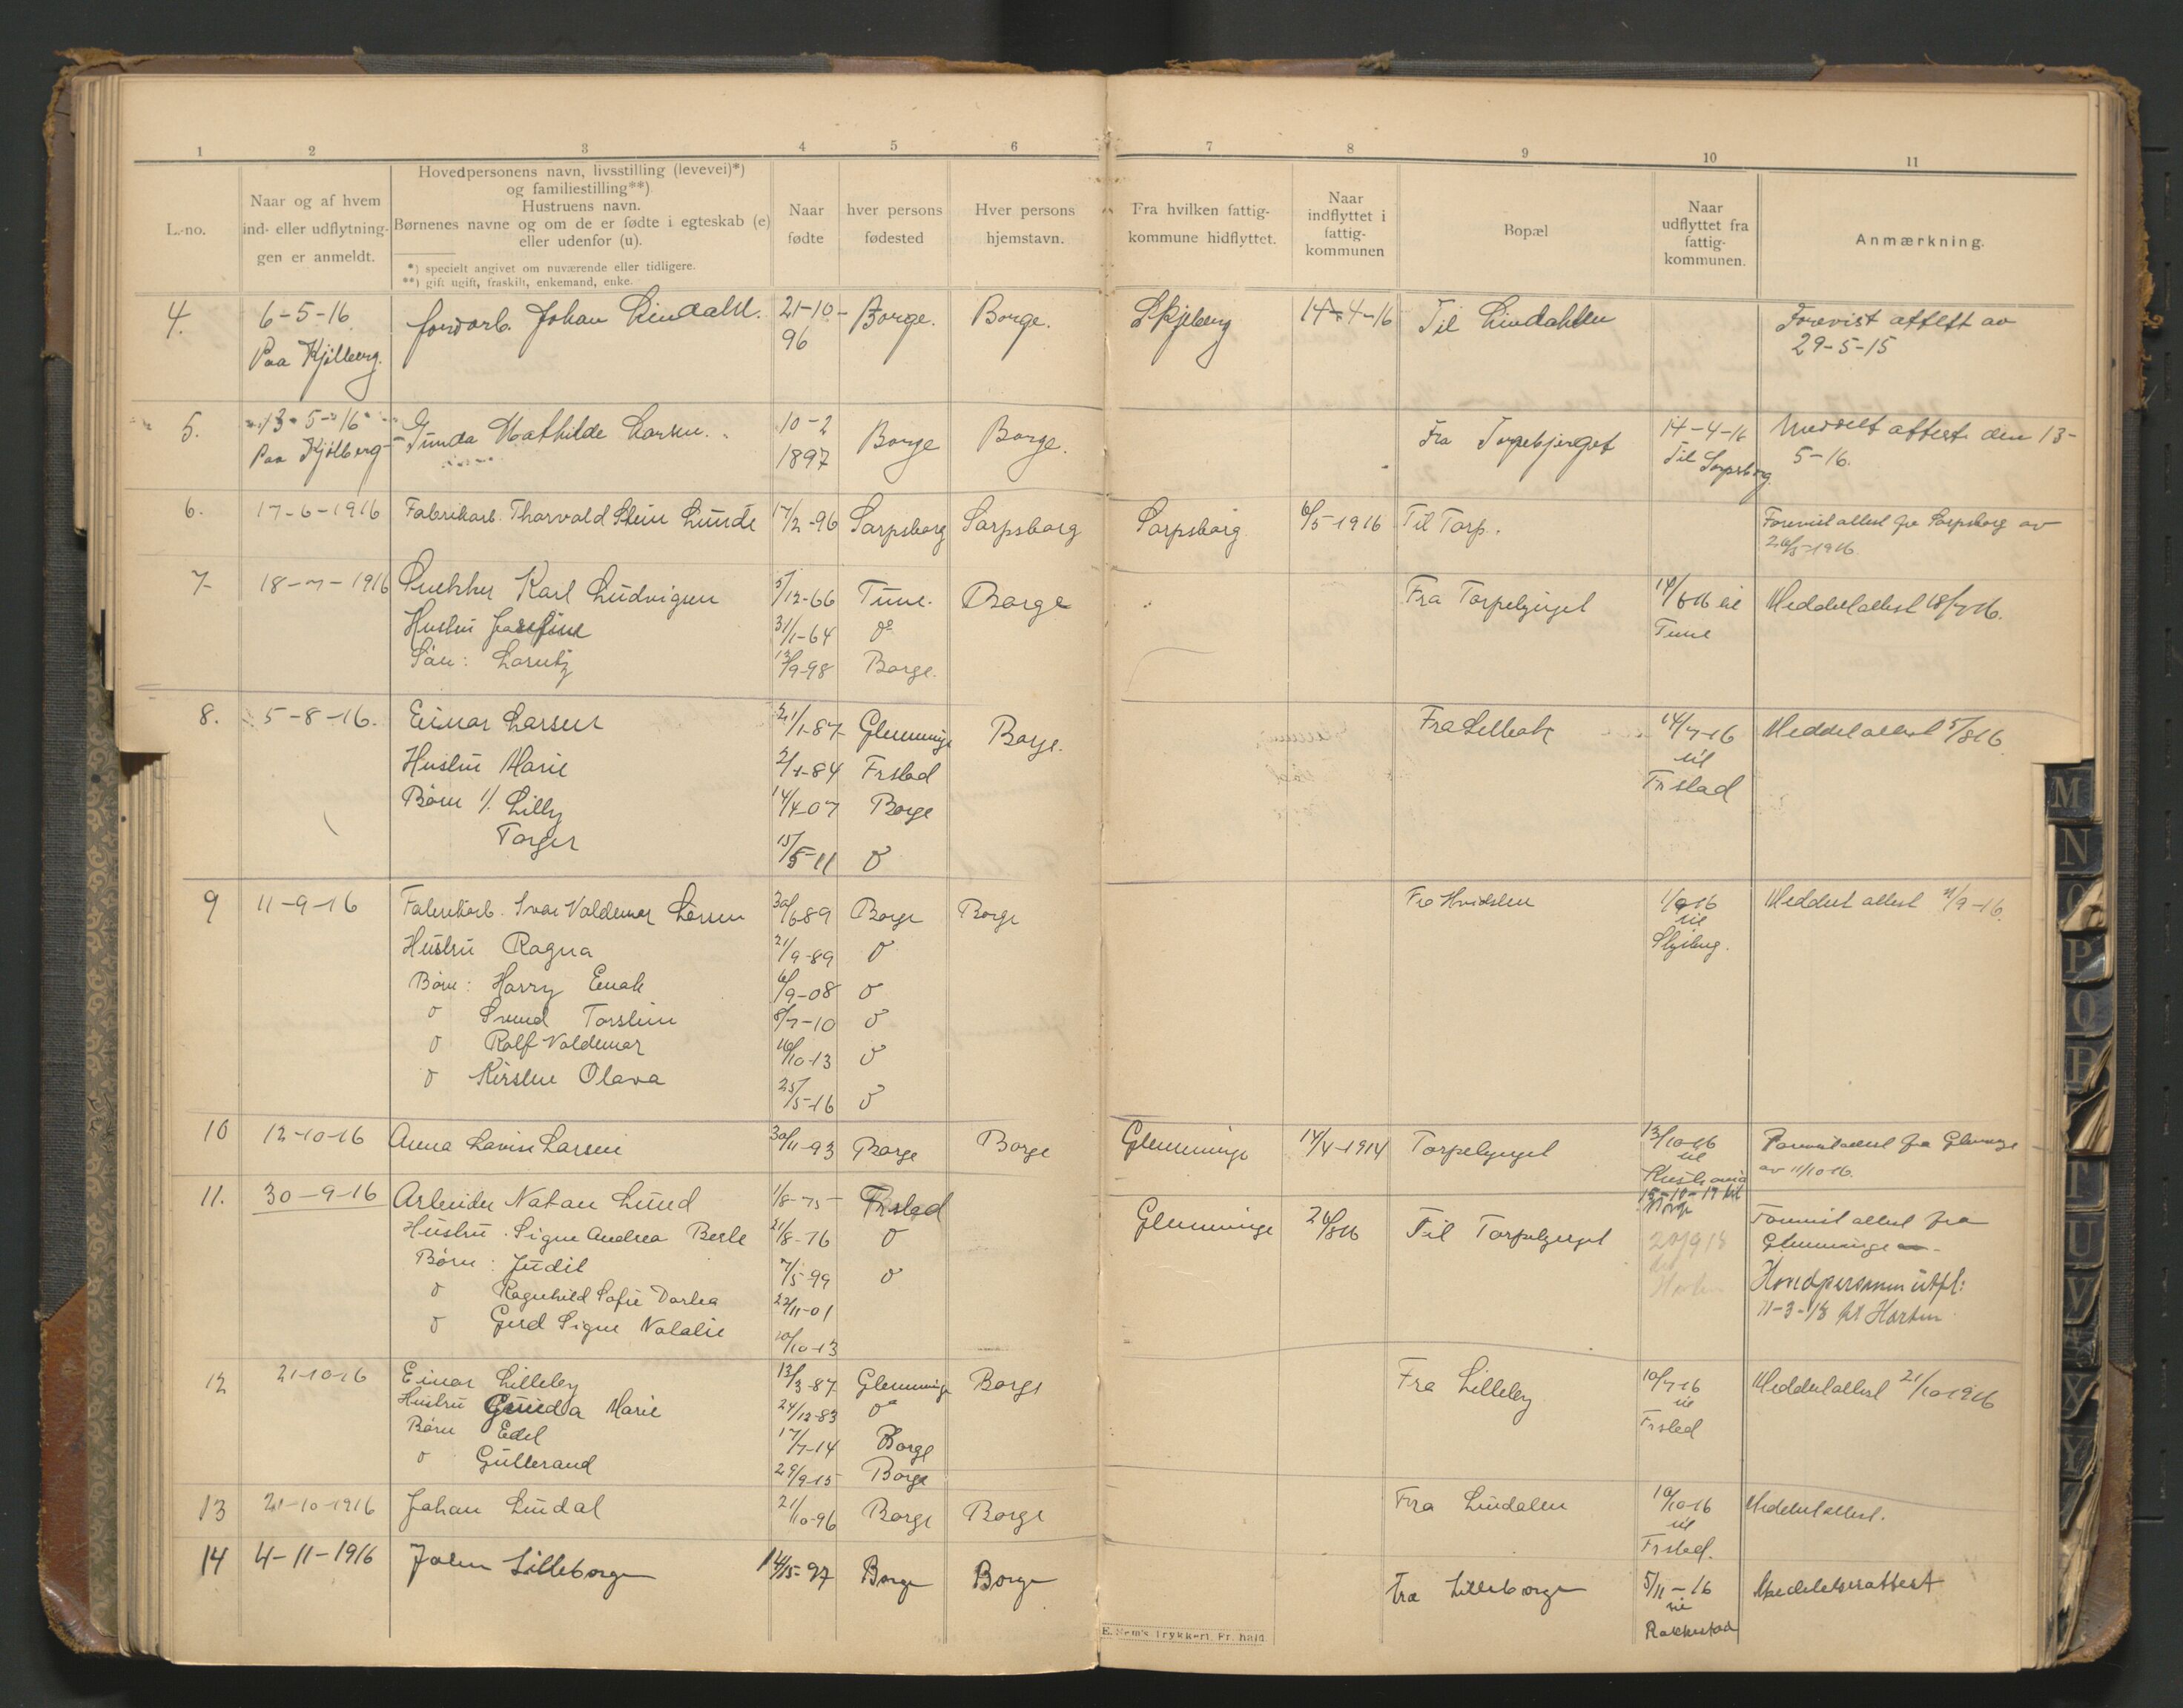 1 2 3 4 5 6 7 8 9 10 11
L.-no.
Naar og af hvem
ind- eller udflytnin-
gen er anmeldt.
Hovedpersonens navn, livsstilling (levevei)*)
og familiestilling**)
Hustruens navn.
Børnenes navne og om de er fødte i egteskab (e)
eller udenfor (u).
*) specielt angivet om nuværende eller tidligere.
**) gift ugift, fraskilt, enkemand, enke.
Naar
fødte
hver persons
fødested
Hver persons
hjemstavn.
Fra hvilken fattig-
kommune hidflyttet.
Naar
indflyttet i
fattig-
kommunen
Bopæl
Naar
udflyttet fra
fattig-
kommunen.
Anmærkning.
4. 6-5-16 Johan Lindahl. 21-10- Borge. Borge. Skjeberg 14-4-16 Til Lindahlen Forevist attest av
Paa Kjölberg. 96 29-5-15
5. 13-5-16 Gunda Mathilde Larsen. 10-2 Borge Borge. Fra Torpebjerget 14-4-16 Meddelt attest den 13-
Paa Kjölberg 1897 Til Sarpsborg 5-16.
6. 17-6-1916 Fabrikarb. Thorvald Stein Lunde 17/2-96 Sarpsborg Sarpsborg Sarpsborg 6/5-1916 Til Torp. Forevist attest fra Sarpsborg av
26/5-1916.
7 18-7-1916 Snekker Karl Ludvigsen 5/12-66 Tune. Borge Fra Torpebjerget 14/616 til Meddelt attest 18/716.
Hustru Josefine 31/1-64 do Tune
Sön: Lorentz 13/9-98 Borge.
8. 5-8-16. Einar Larsen 21/1-87 Glemminge Borge. Fra Sellebak 14/7-16 Meddelt attest 5/816
Hustru Marie 2/1-84 Frstad til
Börn 1/. Lilly 14/4-07 Borge Frstad
Torger 15/5-11 d
9 11-9-16 Fabrikarb. Ivar Valdemar Larsen 30/6-89 Borge Borge Fra Hvidsten 1/916 Meddelt attest 11/9-16.
Hustru Ragna 21/9-89 d til
Börn: Harry Enok 6/9-08 d Skjeberg.
d Svend Torstein 8/7-10 d
d Rolf Valdemar 16/10-13 d
d Kirsten Olava 25/5-16 d
10 12-10-16 Anna Lovise Larsen 30/11-93 Borge Borge Glemminge 14/4-1914 Torpebjerget 13/10-16 Forevist attest fra Glemminge
til av 11/10 16.
Kristiania
11. 30-9-16 Arbeider Natan Lund 1/8-75 Frstad Glemminge 26/816 Til Torpebjerget 15-10-17 til Borge Forevist attest fra
Hustru. Signe Andrea Berle 21/8-76 d 20/9 18 Glemminge
Börn: Judit 7/5-99 d Horten Hovedpersonen utfl:
d Ragnhild Sofie Dorthea 22/11-01 11-3-18 til Horten
d Gerd Signe Natalie 10/10-13
12 21-10-16 Einar Lilleby 13/3-87 Glemminge Borge Fra Lilleby 10/7-16 Meddelt attest 21/10 1916
Hustru Gunda Marie 24/12-83 do til
Börn Edel 17/7-14 Borge Frstad
d Gullerand 29/9-15 Borge
13 21-10-1916 Johan Lindal 21/10-96 Borge Borge Fra Lindalen 10/10-16 Meddelt attest.
til
Frstad.
14 4-11-1916 John Lilleborge 14/5-97 Borge Borge Fra Lilleborge 5/11-16 Meddelelsesattest
til
Rakkestad
E. Sem's Trykkeri, Fr.hald.
M
N
O
P
T
U
V
Y